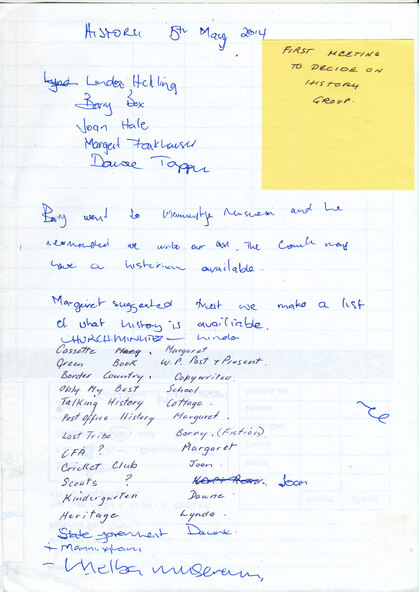 HISTORY 15th May 2014
FIRST MEETING
TO DECIDE ON
HISTORY
GROUP.
Lynda Linda Helling
Barry Box
Joan Hale
Margaret
Dawne
Barry went to Manningham Museum and he
recommended we write our own. The Council may
have a historian available.
Margaret suggested that we make a list
of what history is available.
CHURCH MINUTES - Lynda
Cassette Mag. Margaret
Green Book W.P. Past + Present.
Border Country. Copywriter.
Only My Best School
Talking History Cottage.
Post Office History Margaret.
Lost Tribe Barry. (Fiction)
CFA ? Margaret
Cricket Club Joan.
Scouts ? Joan
Kindergarten Dawne
Heritage Lynda.
State government Dawne.
+ Manningham
- Melba museum,